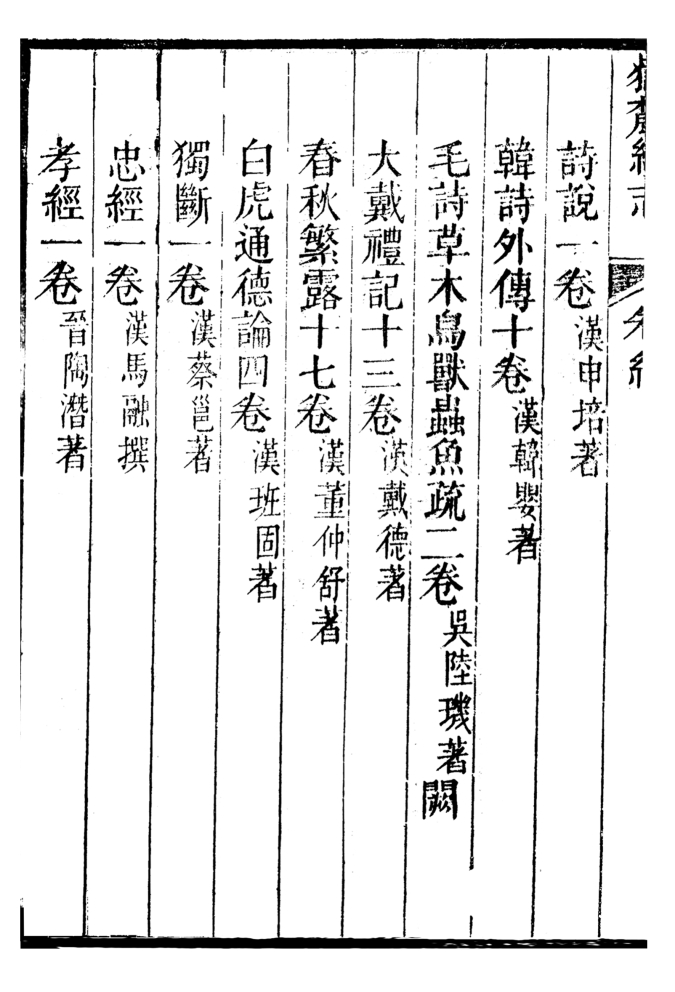 詩說一卷漢申培著
韓詩外傳十卷漢韓嬰著
毛詩草木鳥獸蟲魚疏二卷吳陸璣著闕
大戴禮記十三卷漢戴德著
春秋繁露十七卷漢董仲舒著
白虎通德論四卷漢班固著
獨斷一卷漢蔡邕著
忠經一卷漢馬融撰
孝經一卷晉陶潛著